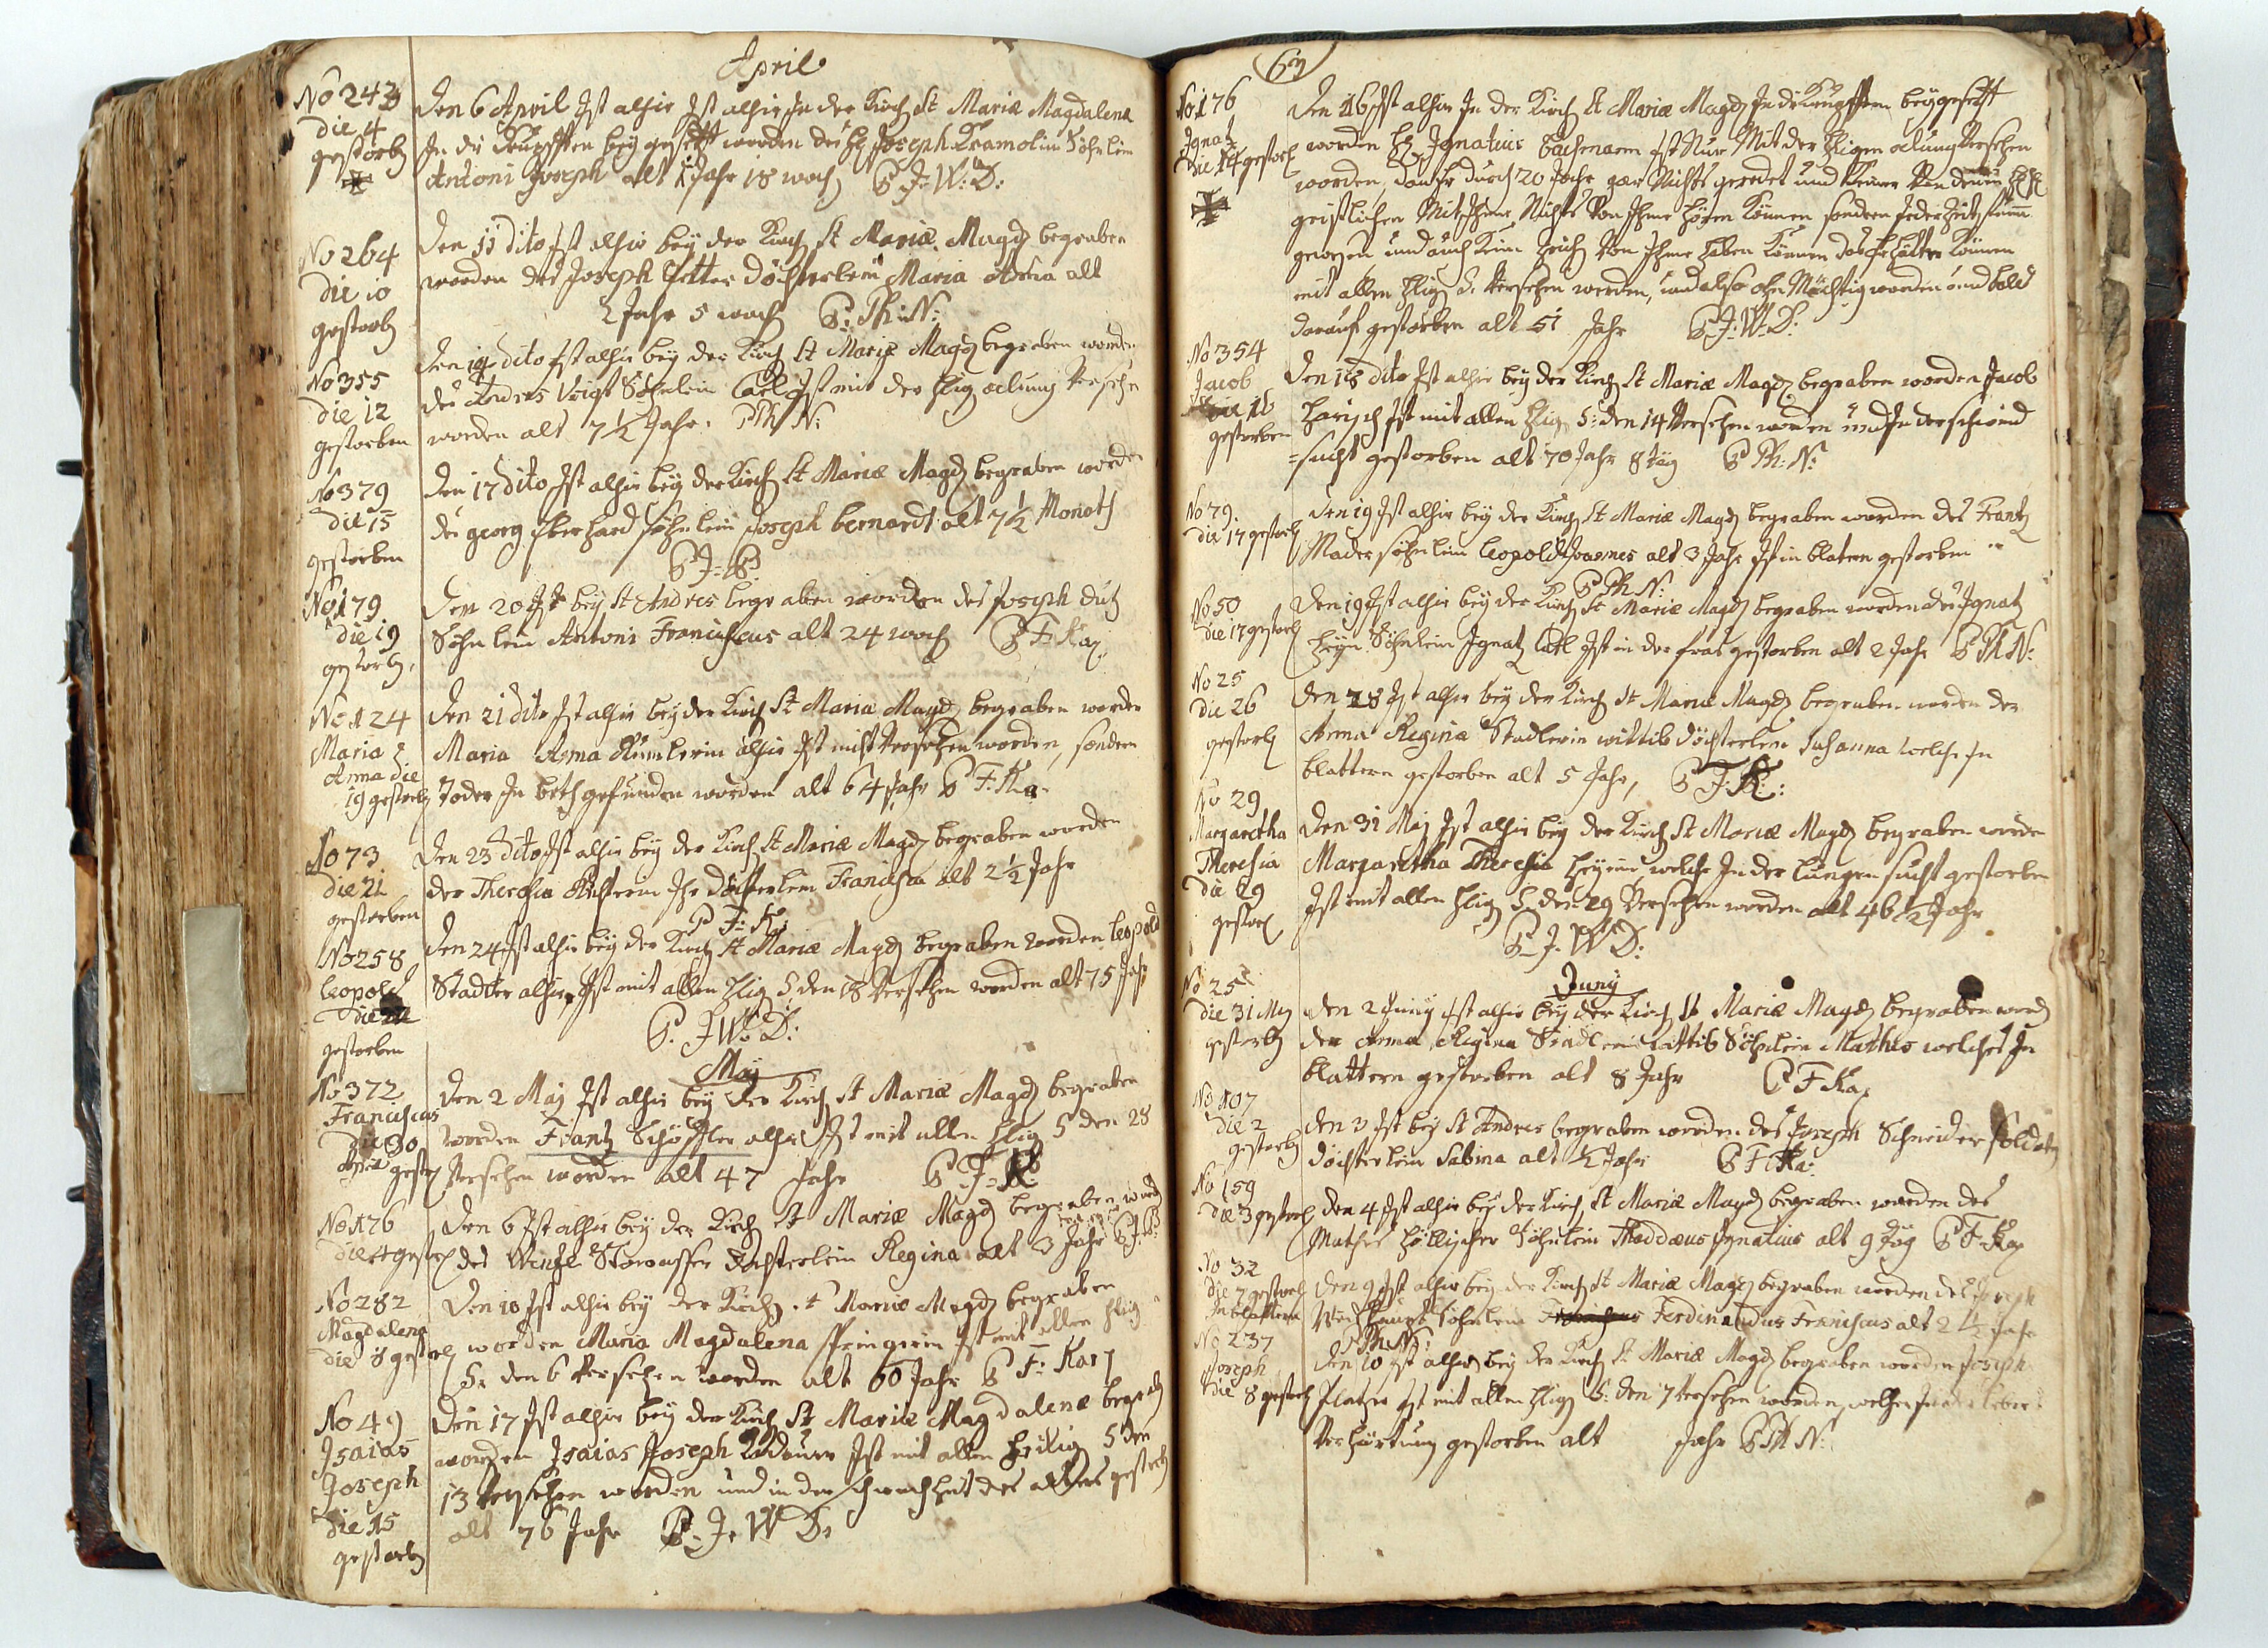 April
No 243
die 4
gestorb
Den 6 April Ist alhir Ist alhir In der Kirch St Mariæ Magdalenæ
In die Krupfften bey gesetzt worden des H Joseph Kramolin Söhnlein
Antoni Joseph alt 1 Jahr 18 woch P J: W: D:
No 264
die 10
gestorb
Den 11 dito Ist alhir bey der Kirch St Mariæ Magd begraben
worden des Joseph Döchterlein Maria Anna alt
2 Jahr 5 woch P: Ph: N:
No 355
die 12
gestorben
Den 14 dito Ist alhir bey der Kirch St Mariæ Magd begraben worden
des Andres Voigt Söhnlein Carl Ist mit der hlig ölung Versehen
worden alt 7 1/2 Jahr. P Ph N:
No 379
die 15
gestorben
Den 17 dito Ist alhir bey der Kirch St Mariæ Magd begraben worden
des georg Eberhard söhnlein Joseph bernard alt 7 1/2 Monath
P J: B:
No 179
die 19
gestorb,
Den 20 Ist bey St Andres begraben worden des Joseph
Söhnlein Antoni Franciscus alt 24 woch P F: Kax
No 124
Maria
Anna die
19 gestorb
Den 21 dito Ist alhir bey der Kirch St Mariæ Magd begraben worden
Maria Anna alhir Ist nicht Versehen worden, sondern
Todter In beth gefunden worden alt 64 Jahr P F: Ka.
No 73
die 21
gestorben
Den 23 dito Ist alhir bey der Kirch St Mariæ Magd begraben worden
der Theresia Ihr Döchterlein Francisca alt 2 1/2 Jahr
P F: K:
No 258
Leopold
die
gestorben
Den 24 Ist alhir bey der Kirch St Mariæ Magd begraben worden Leopold
Stadler alhir, Ist mit allen hlig S den 18 Versehen worden alt 75 Jahr
P. J W: D:
May
No 372
Franciscus
die 30
April gestorb
Den 2 Maj Ist alhir bey der Kirch St Mariæ Magd begraben
worden Frantz Schöffler alhir Ist mit allen hlig S den 28
Versehen worden alt 47 Jahr P F: K:
No 176
die 4 gestorb
Den 6 Ist alhir bey der Kirch St Mariæ Magd begraben word
des Wentzl Döchterlein Regina alt 3 Jahr P J: B:
No 282
Magdalena
die 8 gestorb
Den 10 Ist alhir bey der Kirch St Mariæ Magd begraben
worden Maria Magdalena Ist mit allen hlig
S: den 6 Versehen worden alt 60 Jahr P F: Kax
No 49
Isaias
Joseph
die 15
gestorb
Den 17 Ist alhir bey der Kirch St Mariæ Magdalenæ begrab
worden Isaias Joseph Ist mit allen heilig S den
13 Versehen worden und in der schwachheit des alters gestorb
alt 76 Jahr P. J. W D.
No 176
Ignatz
die 14 gestorb
Den 16 Ist alhir In der Kirch St Mariæ Magd In die Krupfften beygesetzt
worden H Ignatius Bachmann Ist Nur Mit der hligen ölung Versehen
worden, dan Er durch 20 Jahr gar Nichts geredet und Keiner Von denen HH
geistlichen Mit Ihme Nichts Von Ihme hören Können sondern Jeder Zeit stumm
gewesen und auch Kein Zeich Von Ihme haben Können das Er hätte Können
mit allen hlig S. Versehen werden, und also ohn Mächtig worden und bald
darauf gestorben alt 51 Jahr P J: W: D:
No 354
Jacob
die 16
gestorben
Den 18 dito Ist alhir bey der Kirch St Mariæ Magd begraben worden Jacob
Harisch Ist mit allen hlig S: den 14 Versehen worden und In der schwind
=sucht gestorben alt 70 Jahr 8 täg P Ph: N:
No 79.
die 17 gestorb
Den 19 Ist alhir bey der Kirch St Mariæ Magd begraben worden des Frantz
Mader söhnlein Leopold Joannes alt 3 Jahr Ist in blatern gestorben
P Ph N:
No 50
die 17 gestorb
Den 19 Ist alhir bey der Kirch St Mariæ Magd begraben worden des Ignatz
Söhnlein Ignatz Carl Ist in der frais gestorben alt 2 Jahr P Ph N:
No 25
die 26
gestorb
Den 28 Ist alhir bey der Kirch St Mariæ Magd begraben worden der
Anna Regina Stadlerin wittib Döchterlein Susanna welche In
blattern gestorben alt 5 Jahr, P F: K:
No 29
Margaretha
Theresia
die 29
gestorb
Den 31 Maj Ist alhir bey der Kirch St Mariæ Magd begraben worden
Margaretha Theresia welche In der Lungensucht gestorben
Ist mit allen hlig S. den 29 Versehen worden alt 46 1/2 Jahr
P J. W D:
Juny
No 25
die 31 May
gestorb
Den 2 Juny Ist alhir bey der Kirch St Mariæ Magd begraben word
der Anna Regina Stadlerin Wittib Söhnlein Mathes welches In
blattern gestorben alt 8 Jahr P F Kax
No 107
die 2
gestorb
Den 3 Ist bey St Andres begraben worden des Joseph Schneider soldaten
Döchterlein Sabina alt 1/2 Jahr P F: Ka:
No 159
die 3 gestorb
Den 4 Ist alhir bey der Kirch St Mariæ Magd begraben worden des
Mathes Söhnlein Thaddæus Ignatius alt 9 täg P F: Kax
No 32
die 7 gestorb
In blattern
Den 9 Ist alhir bey der Kirch St Mariæ Magd begraben worden des Joseph
söhnlein Ferdinandus Franciscus alt 2 1/2 Jahr
P Ph N:
No 237
Joseph
die 8 gestorb
Den 10 Ist alhir bey der Kirch St Mariæ Magd begraben worden Joseph
Platzer Ist mit allen hlig S: den 7 Versehen worden, welcher In der leber
Verhärtung gestorben alt Jahr P Ph N: